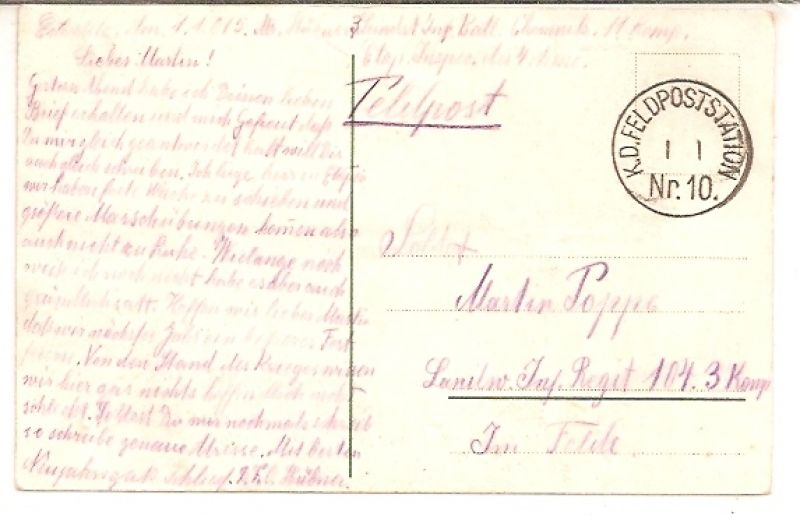 den 1.1.015. Hübner 3 Landst. Inf. Batl. Chemnitz. 11 Komp.
Etap. Inspec. der 4 Armee.
Lieber Martin!
Gestern Abend habe ich Deinen lieben
Brief erhalten und mich gefreut daß
Du mir gleich geantwortet hast will Dir
auch gleich schreiben. Ich liege hier in Etappe
wir haben feste Wache zu schieben und
größere Marschübungen kommen also
auch nicht zu Ruhe. Wielange noch
weis ich noch nicht habe es aber auch
gründlich satt. Hoffen wir lieber Martin
daß wir nächstes Jahr ein besseres Fest
feiern. Von den Stand des Krieges wissen
wir hier gar nichts hoffentlich nicht
schlecht. Solltest Du mir nochmals schreib
so schreibe genaue Adresse. Mit besten
Neujahrsgruß Hübner.
Feldpost
K.D. FELDPOSTSTATION
1 1
Nr. 10.
Soldat
Martin Poppe
Landw. Inf. Regit 104. 3 Komp
Im Felde